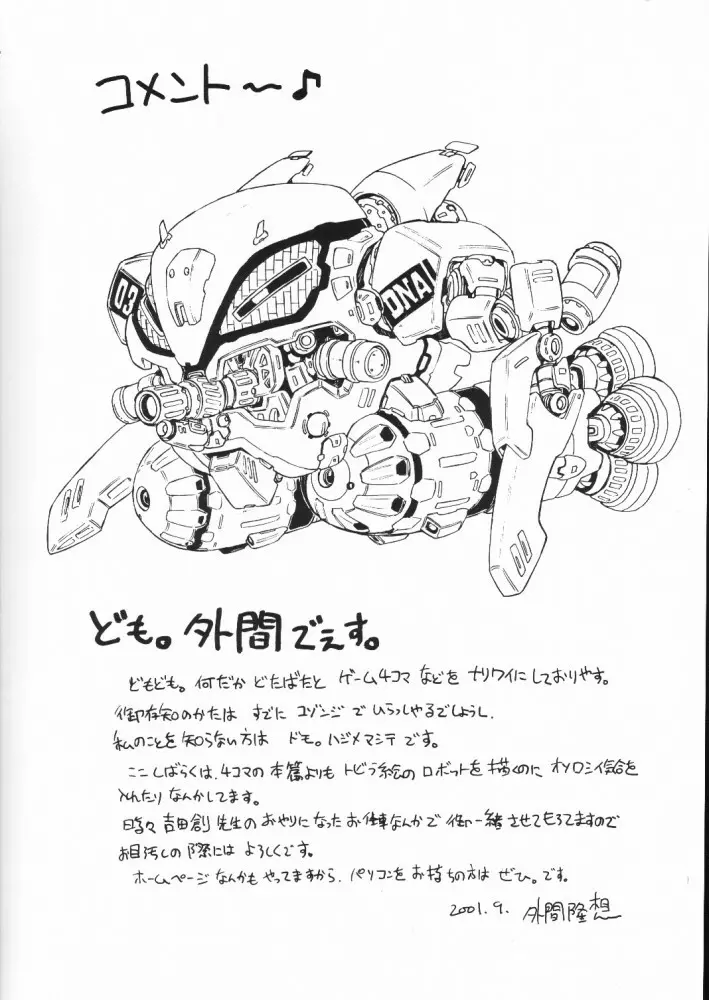 コメント〜♪
03
DNA
ども。外間でぇす。
どもども。何だか どたばたと ゲーム4コマ などを ナリワイに しておりやす。
御存知のかたは すでに ゴゾンジ で いらっしゃるでしょうし、
私のことを 知らない方は ドモ。ハジメマシテ です。
ここしばらくは、4コマの 本篇よりも トビラ絵の ロボットを 描くのに オソロシイ気合を
とんたり なんかしてます。
時々 吉田創 先生の おやりになった お仕事なんかで 御一緒 させてもろてますので
お目汚しの 際には よろしくです。
ホームページ なんかも やってますから、パソコンを お持ちの方は ぜひ。です。
2001.9. 外間隆想